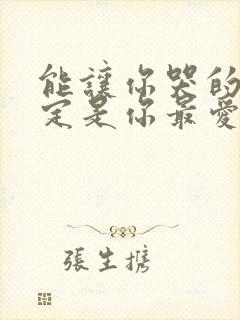 能讓你哭的
定是你最愛
張生攜